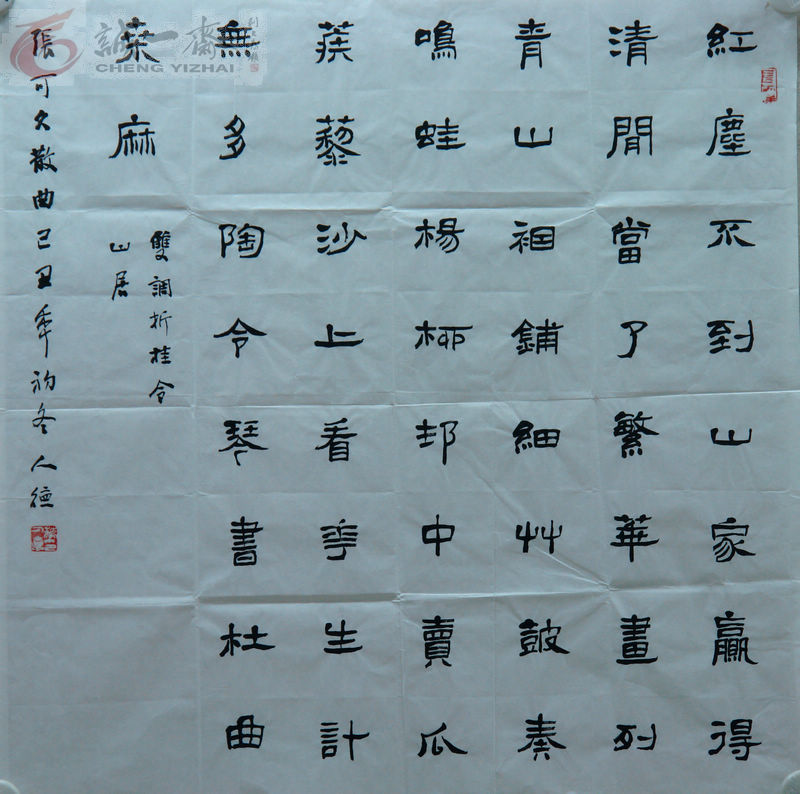 紅塵不到山家贏得
清閒當了繁華畫列
青山裀鋪細艸鼓奏
鳴蛙楊柳邨中賣瓜
蒺藜沙上看花生計
無多陶令琴書杜曲
桒麻
雙調折桂令
山居
張可久散曲己丑年初冬人德
誠一齋
CHENG YIZHAI